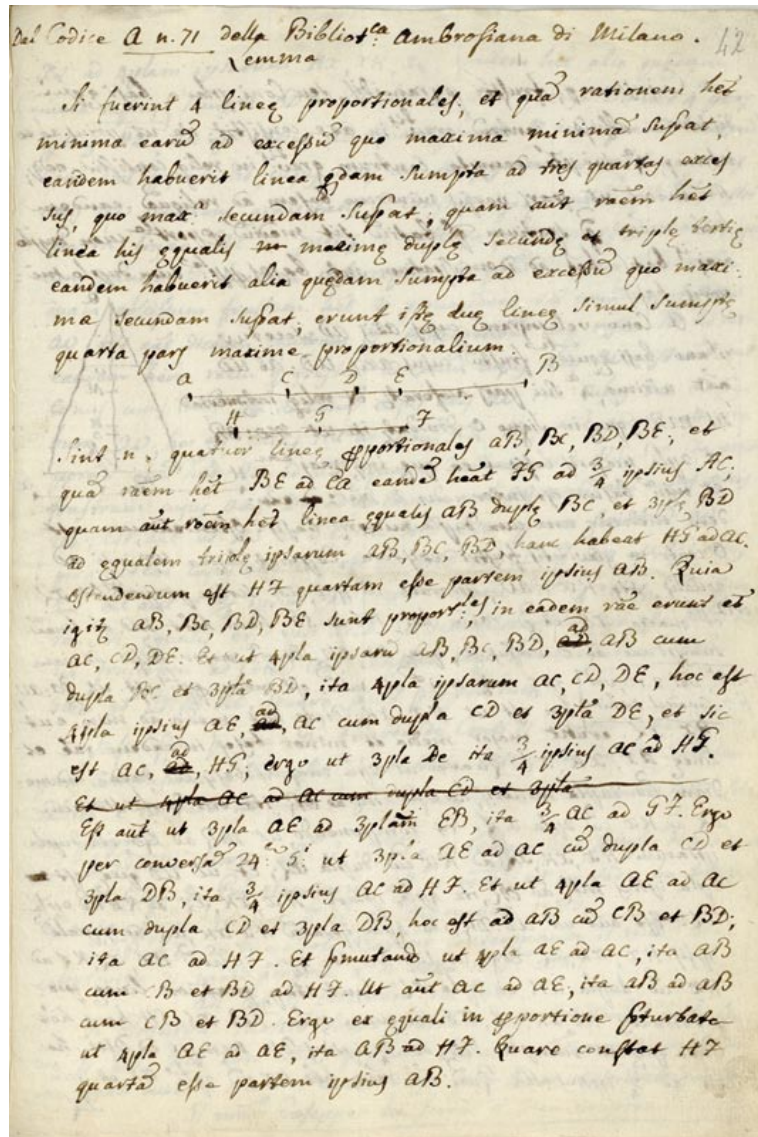 Dal Codice A n. 71 della Bibliot.ca Ambrosiana di Milano.
42
Lemma
Si fuerint 4 lineę proportionales, et quā rationem hēt
minima earū ad excessū quo maxima minimā supat,
eandem habuerit linea qdam sumpta ad tres quartas exces
sus, quo max.ª secundam supat, quam aūt rōem hēt
linea his ęqualis maximę duplę secundę et triplę tertię
eandem habuerit alia quędam sumpta ad excessū quo maxi
ma secundam supat, erunt istę duę lineę simul sumptę
quarta pars maximę proportionalium.
A C D E B
H G F
Sint n. quatuor lineę pportionales AB, BC, BD, BE, et
quā rōem hēt BE ad CA eandē heāt FG ad 3/4 ipsius AC;
quam aūt rōem hēt linea ęqualis AB duplę BC, et 3plę BD
ad ęqualem triplę ipsarum AB, BC, BD, hanc habeat HG ad AC.
Ostendendum est HF quartam esse partem ipsius AB. Quia
igit AB, BC, BD, BE sunt proport.les, in eadem rōe erunt et
AC, CD, DE. Et ut 4pla ipsarū AB, BC, BD, ad AB cum
dupla BC et 3plā BD, ita 4pla ipsarum AC, CD, DE, hoc est
4pla ipsius AE, ad AC cum dupla CD et 3plā DE, et sic
est AC, ad HG; ergo ut 3pla De ita 3/4 ipsius AC ad HG.
Et ut 4pla AC ad AC cum dupla CD et 3plā
Est aūt ut 3pla AE ad 3plam EB, ita 3/4 AC ad GF. Ergo
per conversā 24 5.i ut 3pla AE ad AC cū dupla CD et
3pla DB, ita 3/4 ipsius AC ad HF. Et ut 4pla AE ad AC
cum dupla CD et 3pla DB, hoc est ad AB cū CB et BD;
ita AC ad HF. Et pmutando ut 4pla AE ad AC, ita AB
cum CB et BD ad HF. Ut aūt AC ad AE, ita AB ad AB
cum CB et BD. Ergo ex ęquali in pportione pturbata
ut 4pla AE ad AE, ita AB ad HF. Quare constat HF
quartā esse partem ipsius AB.